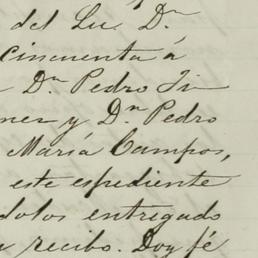 del Lu Dn
cincuenta á
Dn Pedro Ji
ner y Dn Pedro
María Campos,
este espediente
dolos entregado
recibo. Doy fé